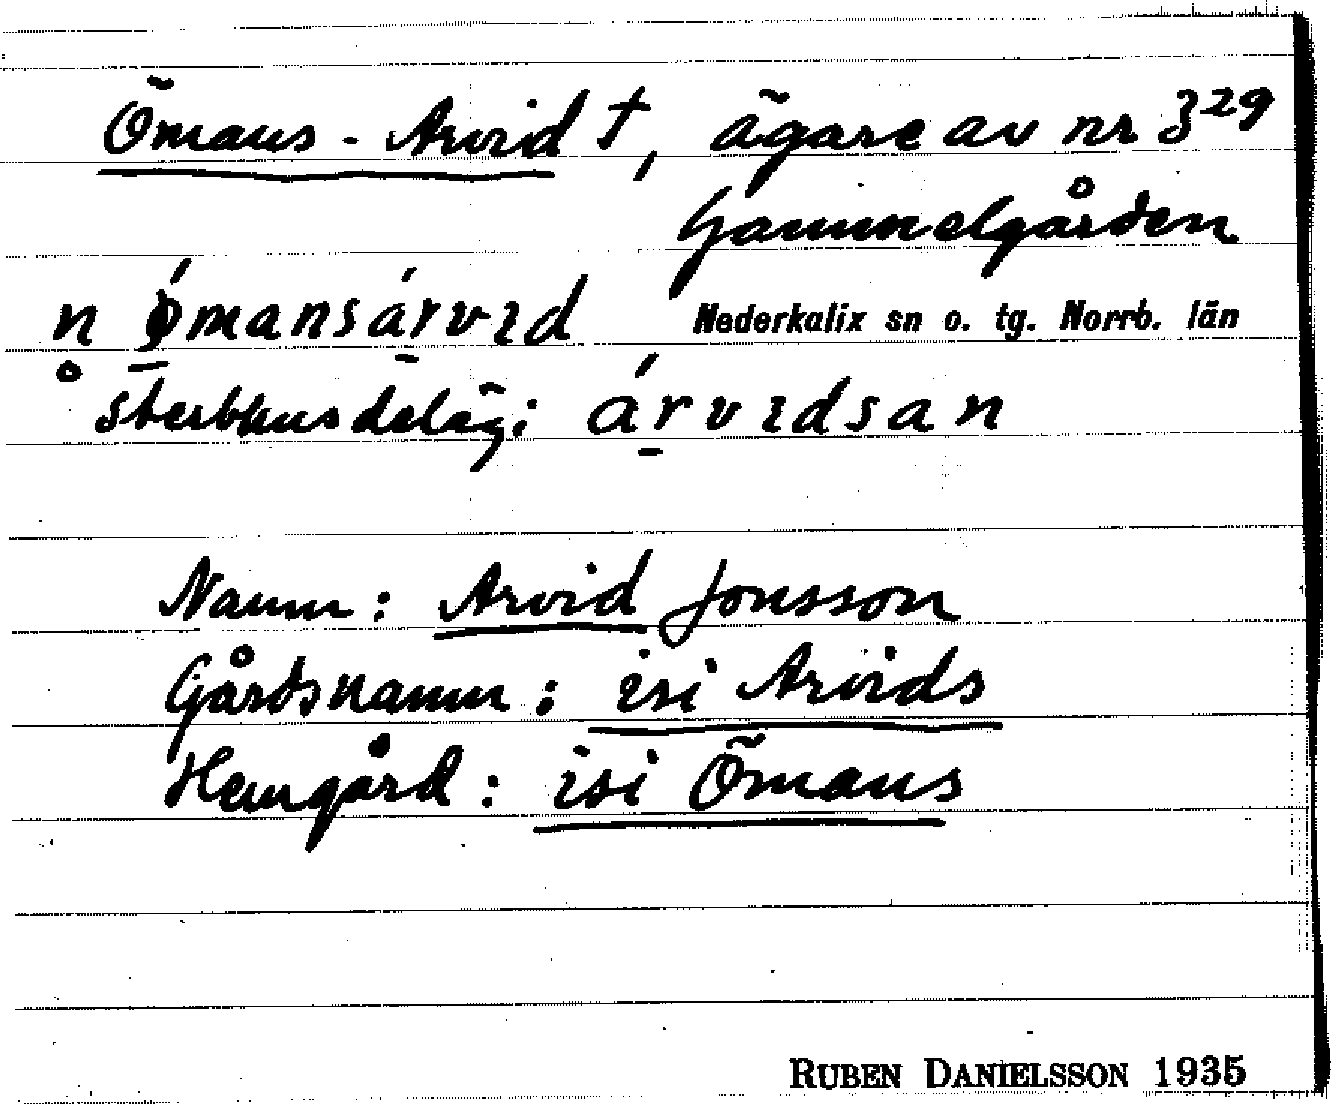 Ömans - Arvid †, ägare av nr 3²⁹
Gammelgården
n ǿmansárvɩd Nederkalix sn o. tg. Norrb. län
sterbhusdeläg: árvɩdsan
Namn: Arvid Jonsson
Gårdsnamn: isi Arvids
Hemgård: isi Ömans
RUBEN DANIELSSON 1935